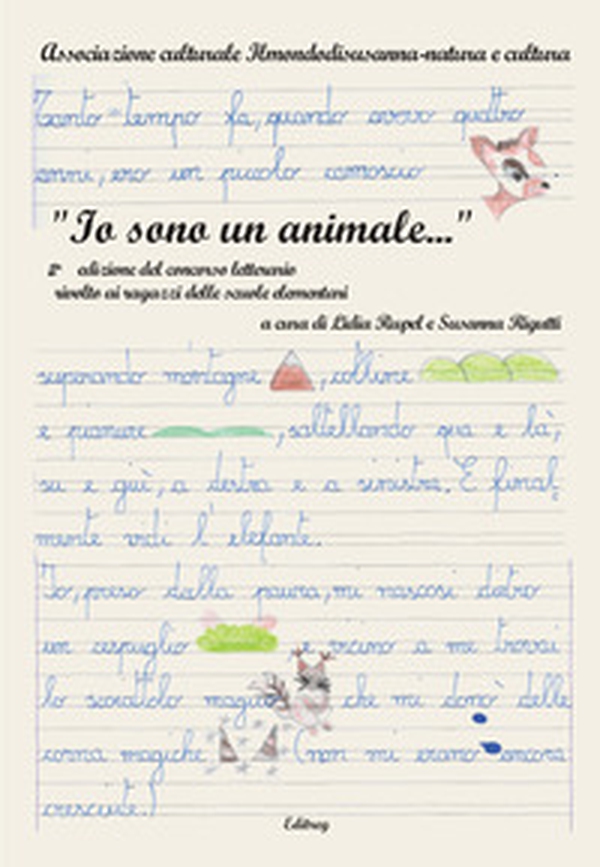 Associazione culturale Ilmondodisusanna-natura e cultura
Tanto tempo fa, quando avevo quattro
anni, ero un piccolo camoscio
"Io sono un animale..."
2ª edizione del concorso letterario
rivolto ai ragazzi delle scuole elementari
a cura di Lidia Rupel e Susanna Rigutti
superando montagne , colline
e pianure , saltellando qua e là,
su e giù, a destra e a sinistra. E final,
mente vidi l'elefante.
Io, preso dalla paura, mi nascosi dietro
un cespuglio e vicino a me trovai
lo scoiattolo magico che mi donò delle
corna magiche (non mi erano ancora
cresciute.)
Editreg